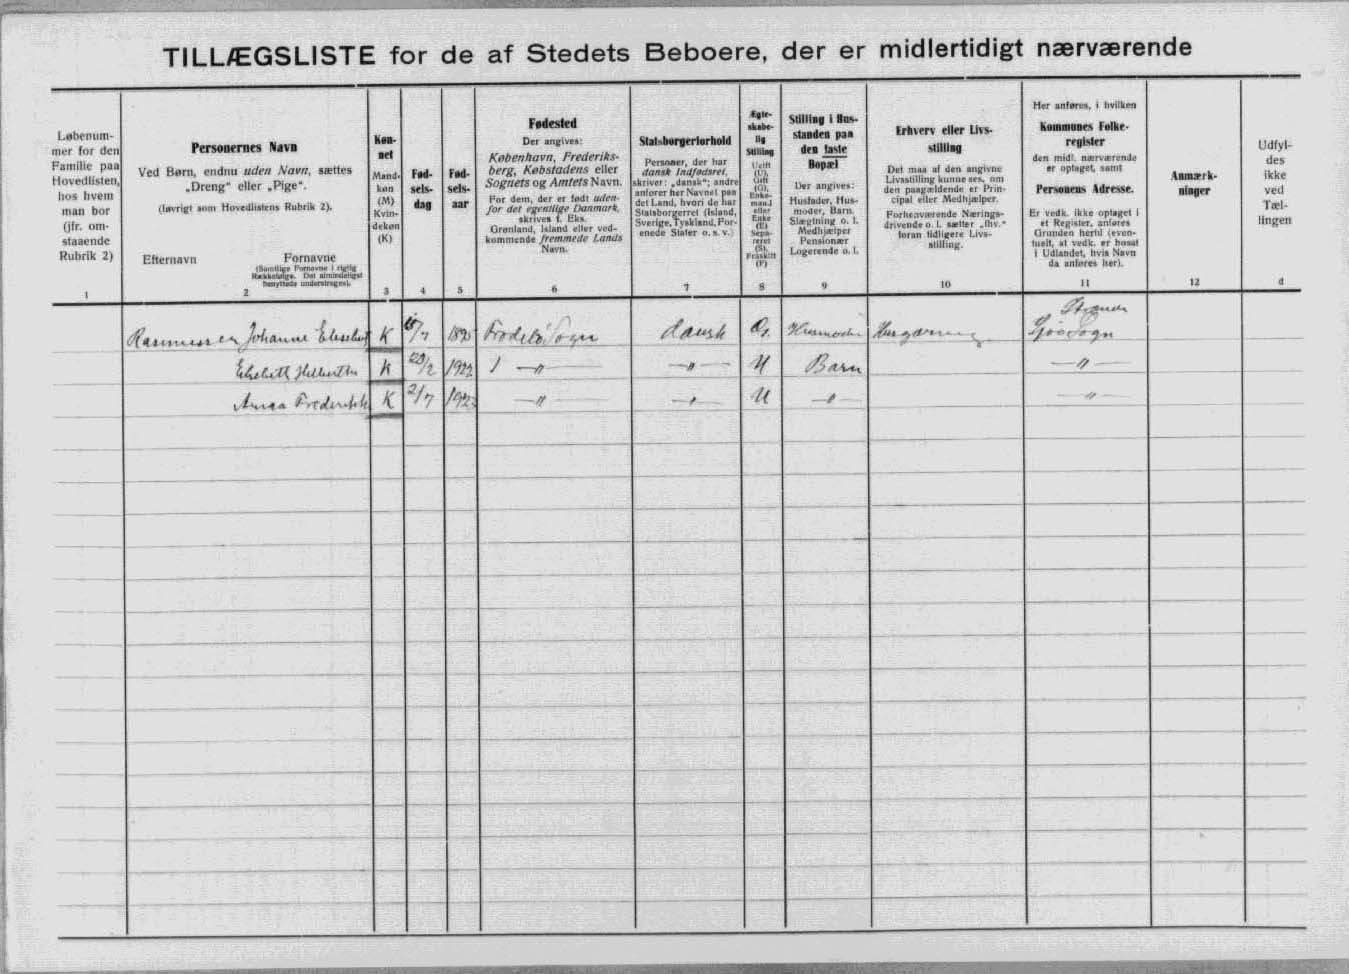 TILLÆGSLISTE for de af Stedets Beboere, der er midlertidigt nærværende
Løbenum-
mer for den
Familie paa
Hovedlisten,
hos hvem
man bor
(jfr. om-
staaende
Rubrik 2)
1
Personernes Navn
Ved Børn, endnu uden Navn, sættes
„Dreng“ eller „Pige“.
(Iøvrigt som Hovedlistens Rubrik 2).
Efternavn
Fornavne
(Samtlige Fornavne i rigtig
Rækkefølge. Det almindeligst
benyttede understreges).
2
Køn-
net
Mand-
køn
(M)
Kvin-
dekøn
(K)
3
Fød-
sels-
dag
4
Fød-
sels-
aar
5
Fødested
Der angives:
København, Frederiks-
berg, Købstadens eller
Sognets og Amtets Navn.
For dem, der er født uden-
for det egentlige Danmark,
skrives f. Eks.
Grønland, Island eller ved-
kommende fremmede Lands
Navn.
6
Statsborgerforhold
Personer, der har
dansk Indfødsret,
skriver: „dansk“; andre
anfører her Navnet paa
det Land, hvori de har
Statsborgerret (Island,
Sverige, Tyskland, For-
enede Stater o. s. v.)
7
Ægte-
skabe-
lig
Stilling
Ugift
(U),
Gift
(G),
Enke-
mand
eller
Enke
(E)
Sepa-
reret
(S),
Fraskilt
(F)
8
Stilling i Hus-
standen paa
den faste
Bopæl
Der angives:
Husfader, Hus-
moder, Barn.
Slægtning o. l.
Medhjælper
Pensionær
Logerende o. l.
9
Erhverv eller Livs-
stilling
Det maa af den angivne
Livsstilling kunne ses, om
den paagældende er Prin-
cipal eller Medhjælper.
Forhenværende Nærings-
drivende o. l. sætter „fhv.“
foran tidligere Livs-
stilling.
10
Her anføres, i hvilken
Kommunes Folke-
register
den midl. nærværende
er optaget, samt
Personens Adresse.
Er vedk. ikke optaget i
et Register, anføres
Grunden hertil (even-
tuelt, at vedk. er bosat
i Udlandet, hvis Navn
da anføres her).
11
Anmærk-
ninger
12
Udfyl-
des
ikke
ved
Tæl-
lingen
d
Rasmussen Johanne K 1895 Sogn dansk G. Husmoder Husgerning Sogn
Elsebeth K 20/2 1922 — „ — — „ — U Barn — „ —
Anna Frederikke K 2/7 192 — „ — — „ — U — „ — — „ —